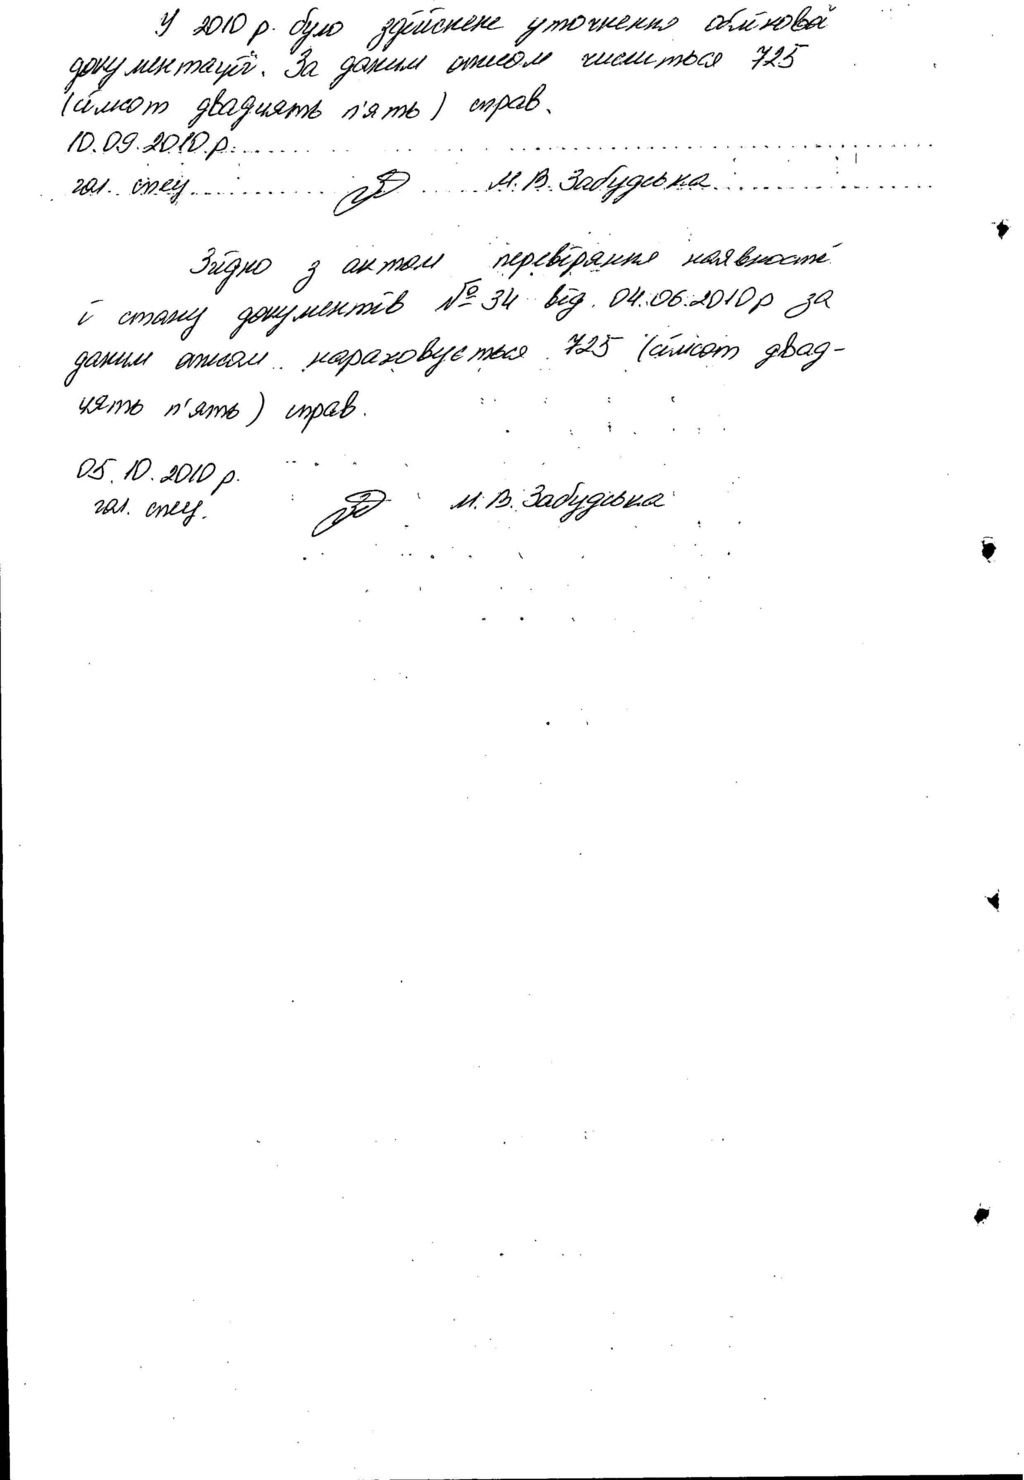 У 2010 р. було здійснене уточнення облікової
документації. За даним описом числиться 725
(сімсот двадцять п'ять) справ.
10.09.2010 р.
гол. спец. М.В. Забудська
Згідно з актом перевіряння наявності
і стану документів № 34 від 04.06.2010 р за
даним описом нараховується 725 (сімсот двад-
цять п'ять) справ.
05.10.2010 р.
гол. спец. М.В. Забудська